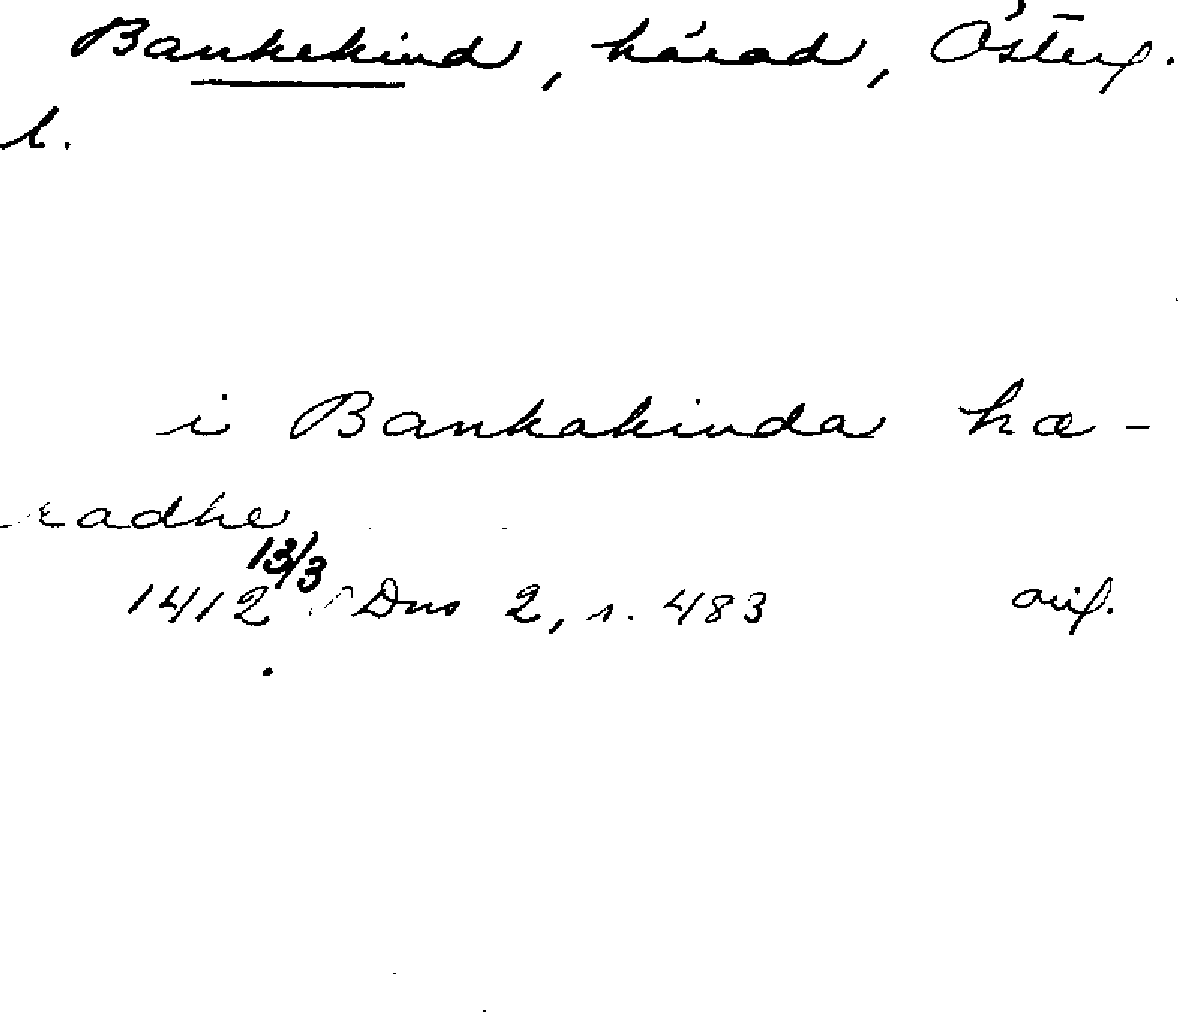 Bankekind, härad, Österg.
l.
i Bankakinda hæ-
radhe
13/3
1412 Dns 2, s. 483 orig.